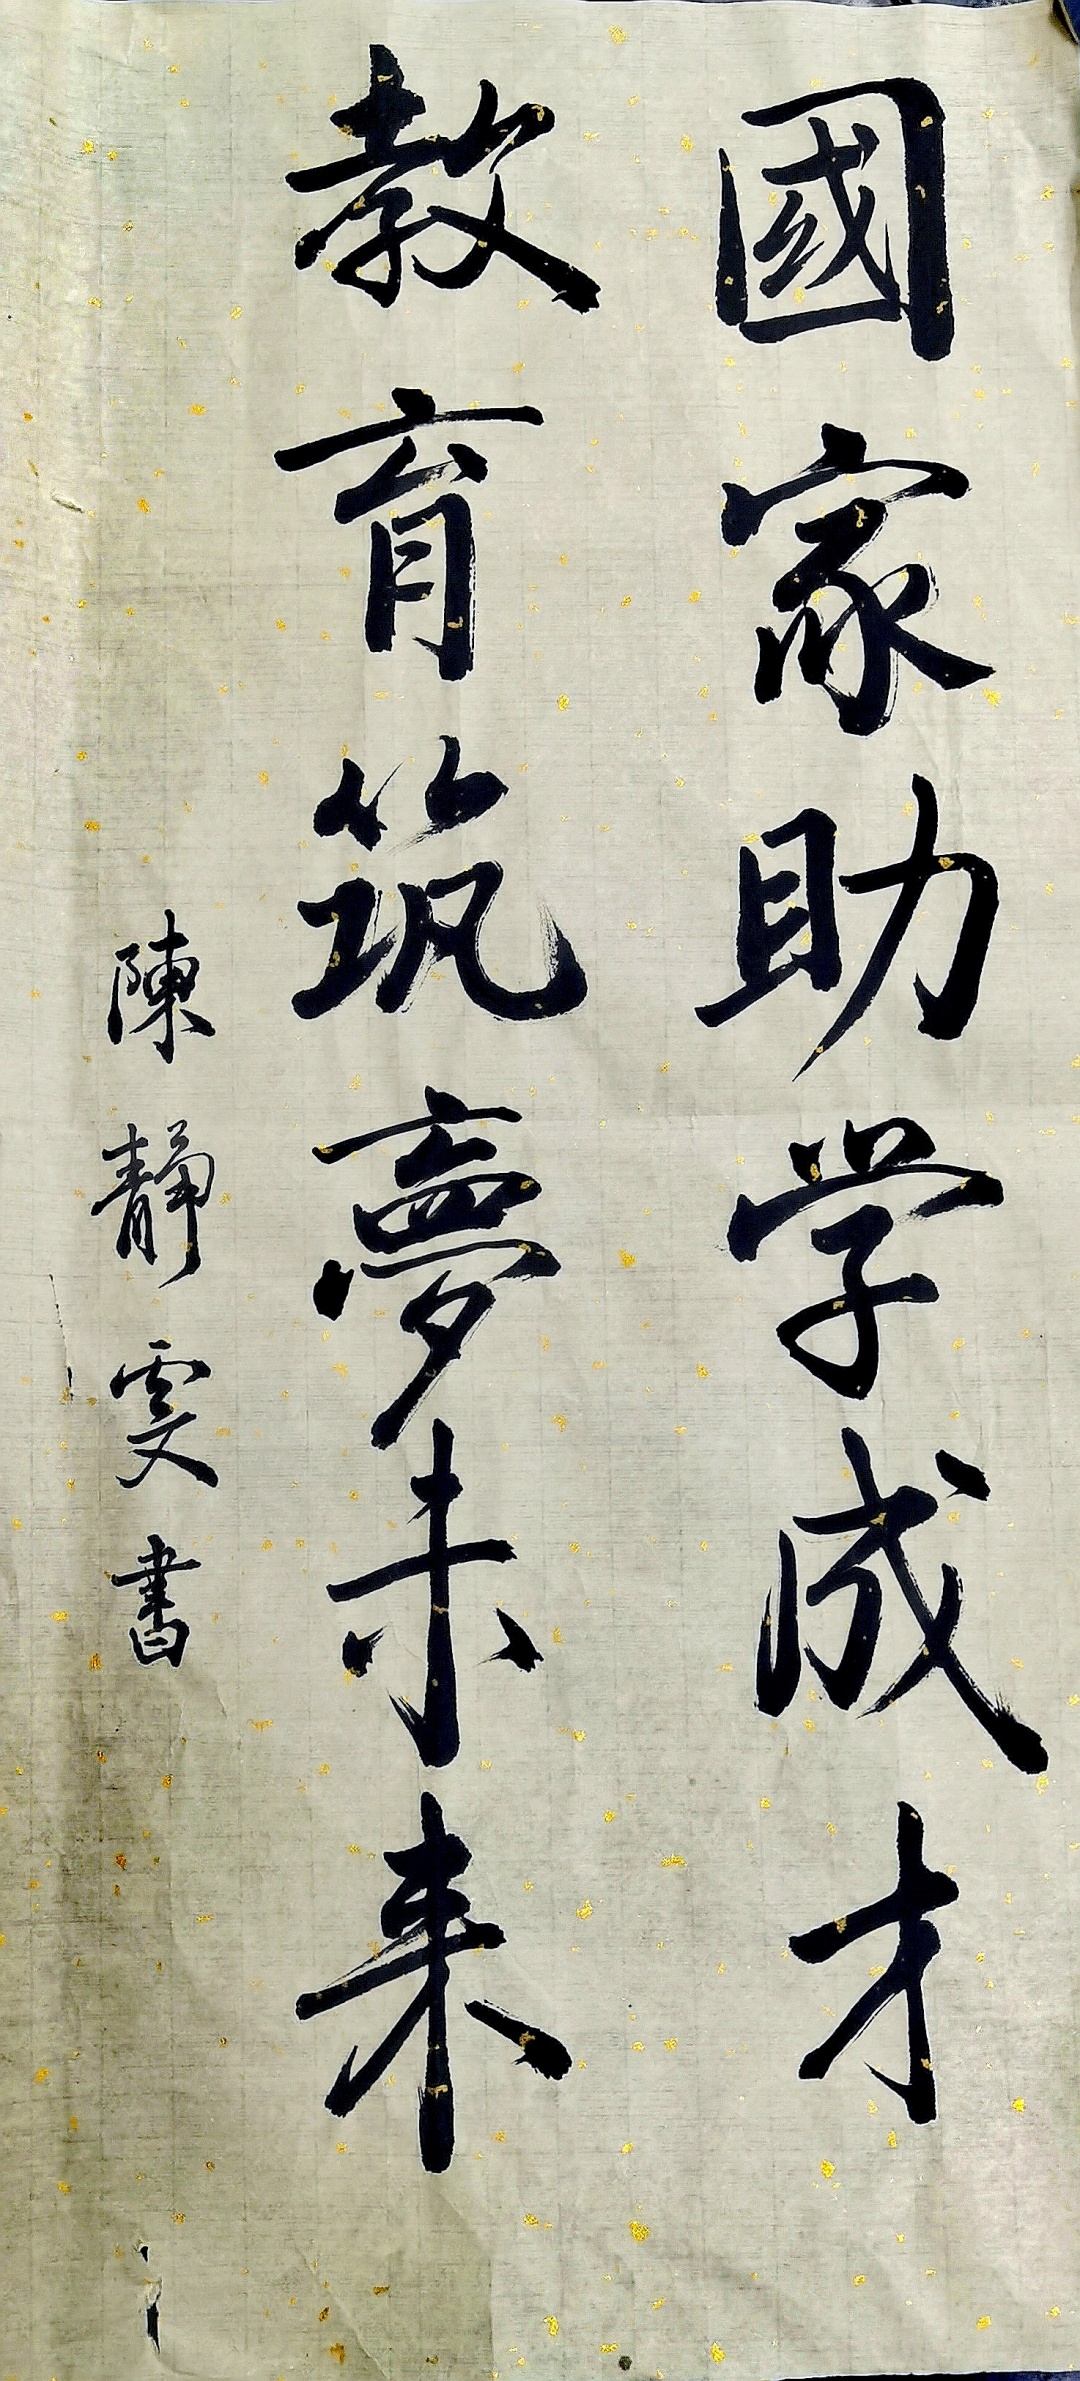 國家助学成才
教育筑夢未来
陳靜雯書